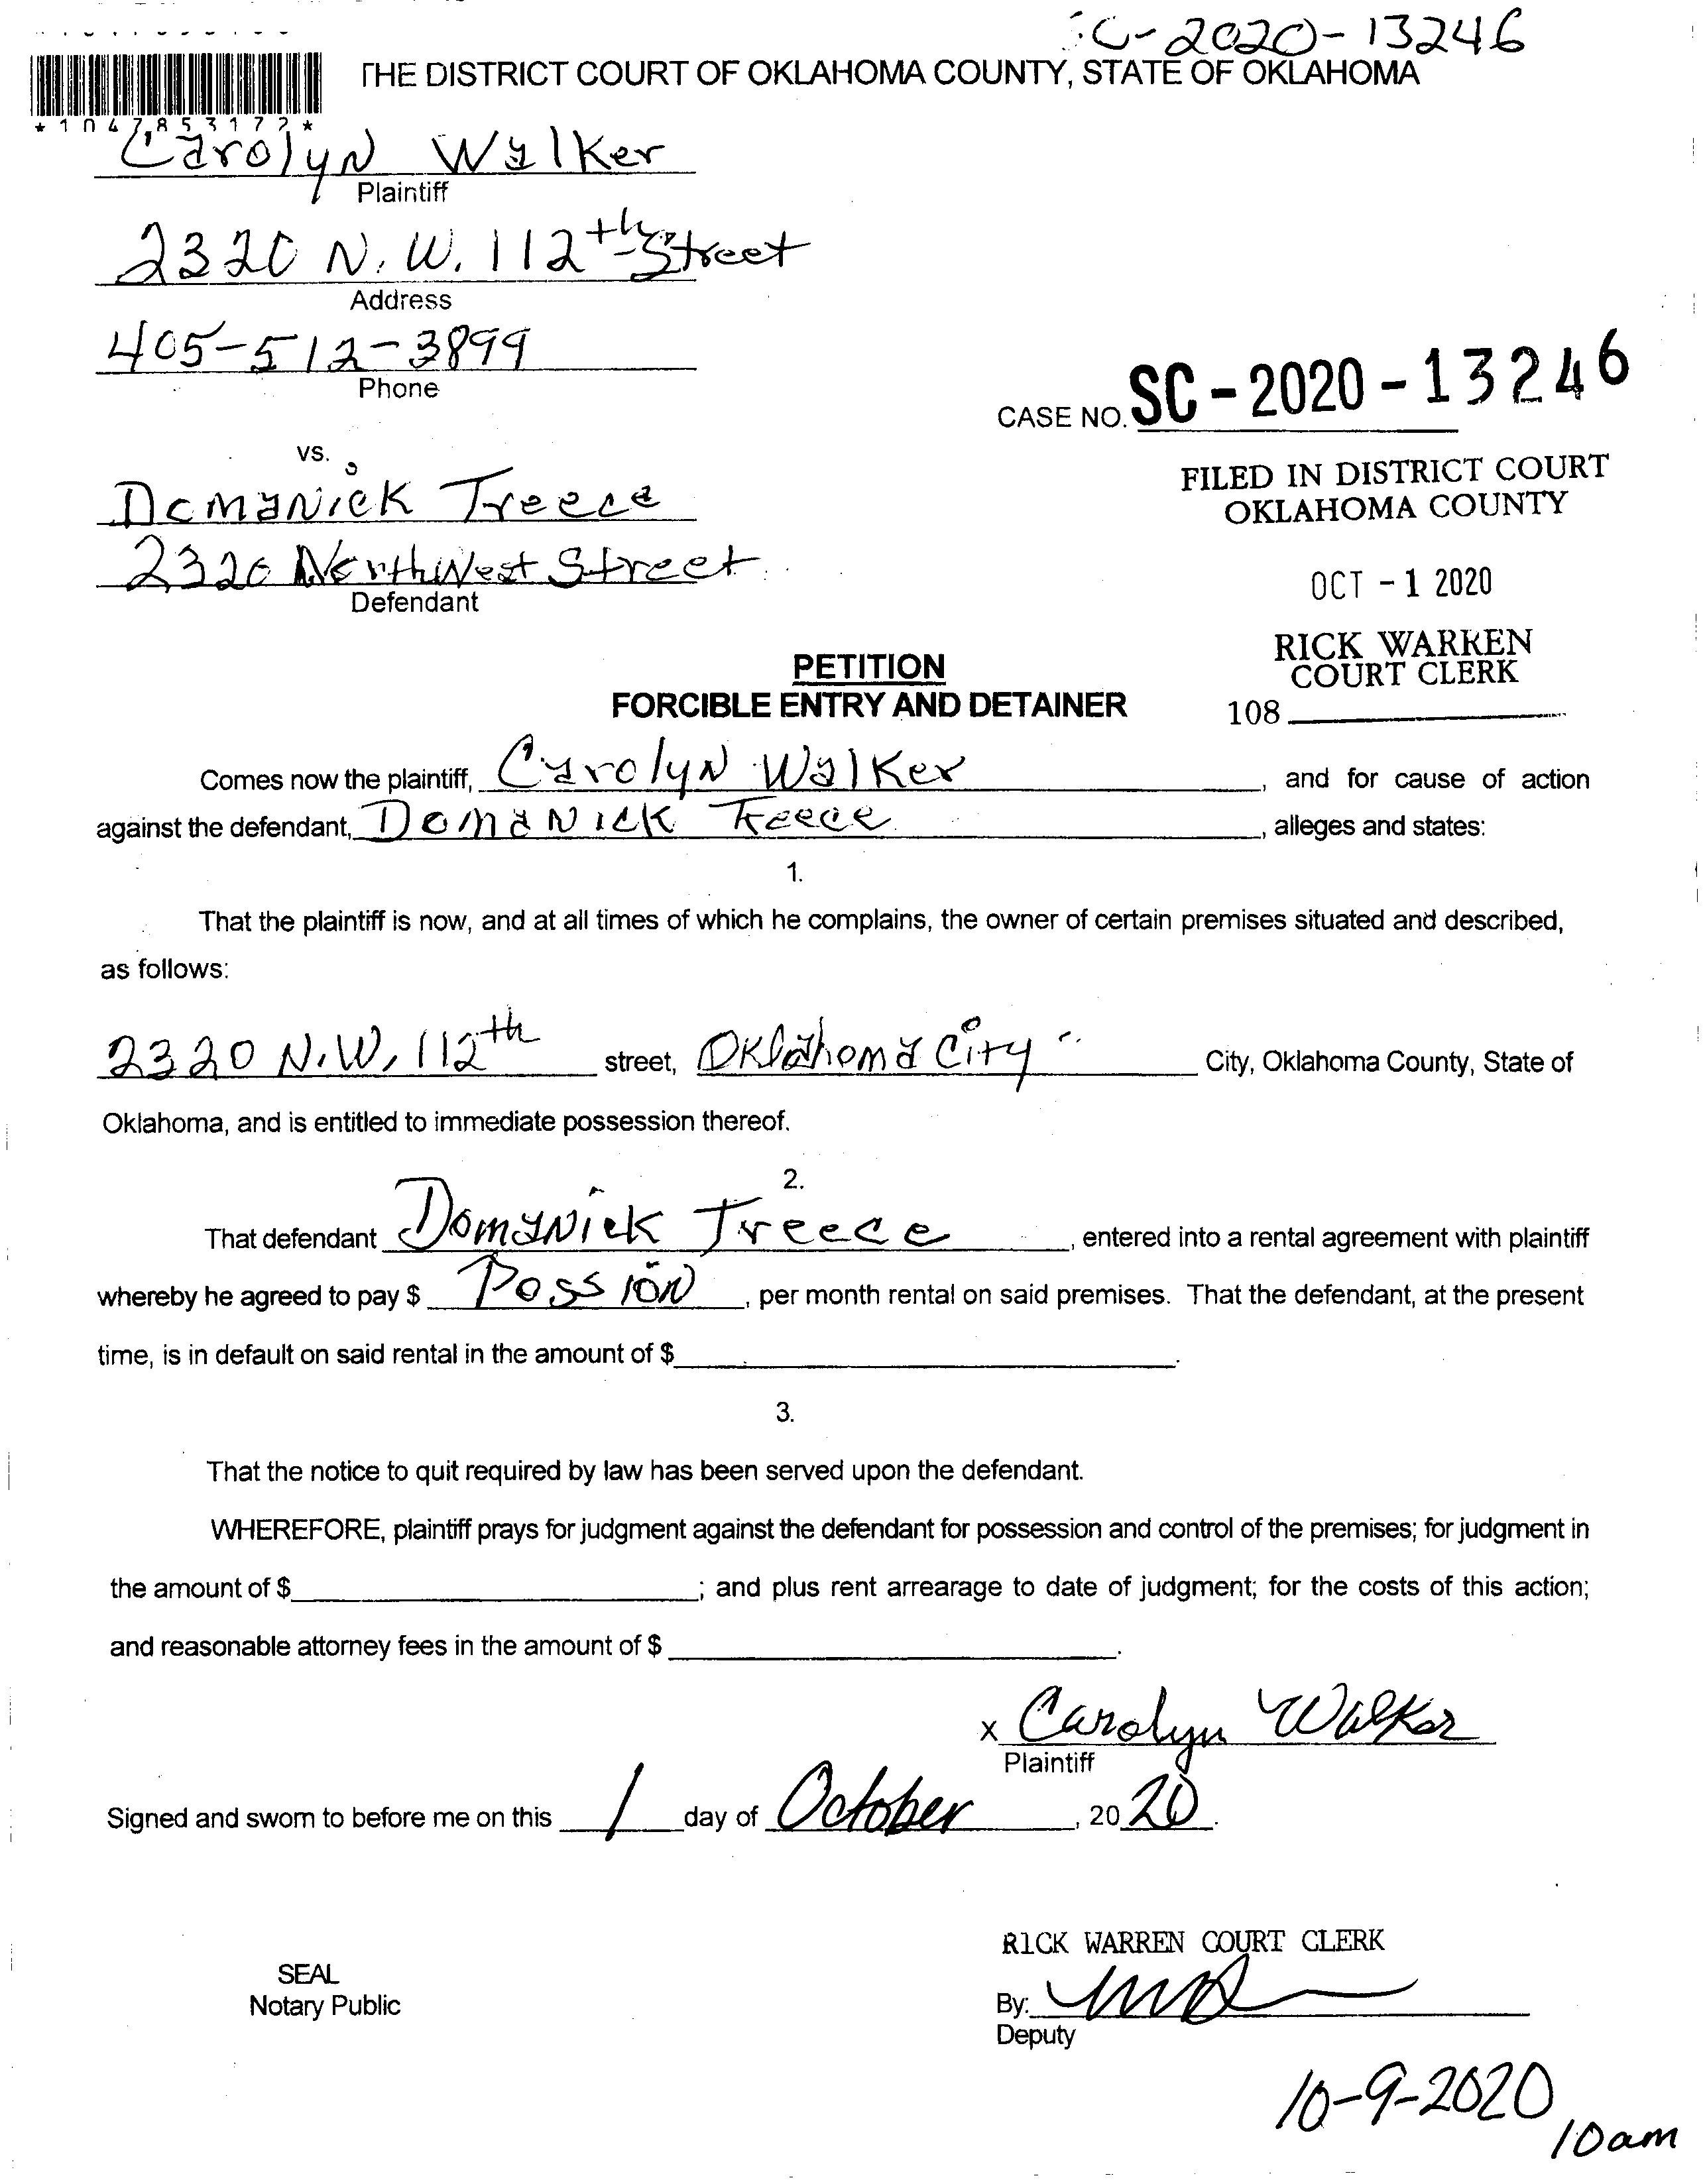 C-2020-13246
THE DISTRICT COURT OF OKLAHOMA COUNTY, STATE OF OKLAHOMA
*1047853172*
Carolyn Walker
Plaintiff
2320 N.W. 112th Street
Address
405-512-3899
Phone
CASE NO. SC-2020-13246
vs.
FILED IN DISTRICT COURT
OKLAHOMA COUNTY
Domanick Treece
2320 NorthWest Street
Defendant
OCT -1 2020
RICK WARREN
COURT CLERK
108
PETITION
FORCIBLE ENTRY AND DETAINER
Comes now the plaintiff, Carolyn Walker, and for cause of action
against the defendant, Domanick Treece, alleges and states:
1.
That the plaintiff is now, and at all times of which he complains, the owner of certain premises situated and described,
as follows:
2320 N.W. 112th street, Oklahoma City City, Oklahoma County, State of
Oklahoma, and is entitled to immediate possession thereof.
2.
That defendant Domanick Treece, entered into a rental agreement with plaintiff
whereby he agreed to pay $ Possion, per month rental on said premises. That the defendant, at the present
time, is in default on said rental in the amount of $.
3.
That the notice to quit required by law has been served upon the defendant.
WHEREFORE, plaintiff prays for judgment against the defendant for possession and control of the premises; for judgment in
the amount of $; and plus rent arrearage to date of judgment; for the costs of this action;
and reasonable attorney fees in the amount of $.
x Carolyn Walker
Plaintiff
Signed and sworn to before me on this 1 day of October, 2020.
RICK WARREN COURT CLERK
SEAL
Notary Public
By:
Deputy
10-9-2020
10am